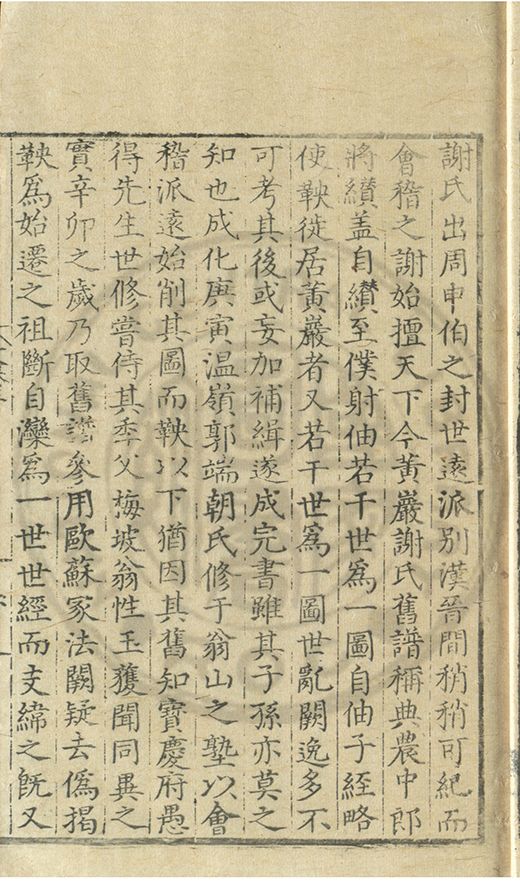 謝氏出周申伯之封世遠派別漢晉間稍稍可紀而
會稽之謝始擅天下今黃巖謝氏舊譜稱典農中郎
將纘盖自纘至僕射伷若干世爲一圖自伷子經略
使鞅徙居黃巖者又若干世爲一圖世亂闕逸多不
可考其後或妄加補緝遂成完書雖其子孫亦莫之
知也成化庚寅温嶺郭端朝氏修于翁山之塾以會
稽派遠始削其圖而鞅以下猶因其舊知寶慶府愚
得先生世修嘗侍其季父梅坡翁性玉獲聞同異之
實辛卯之歲乃取舊譜參用歐蘇家法闕疑去僞揭
鞅爲始遷之祖斷自灤爲一世世經而支緯之旣又